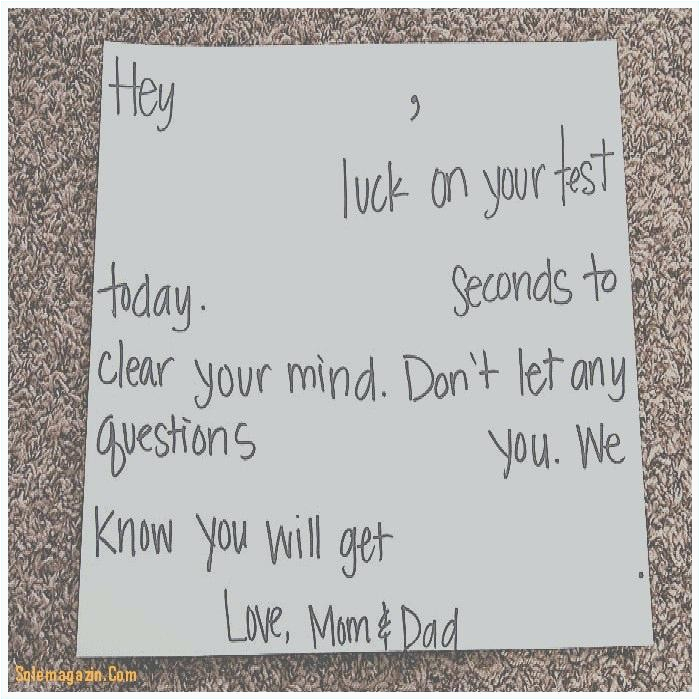 Hey ,
luck on your test
today. Seconds to
clear your mind. Don't let any
questions you. We
Know you will get .
Love, Mom & Dad
Solemagazin.Com